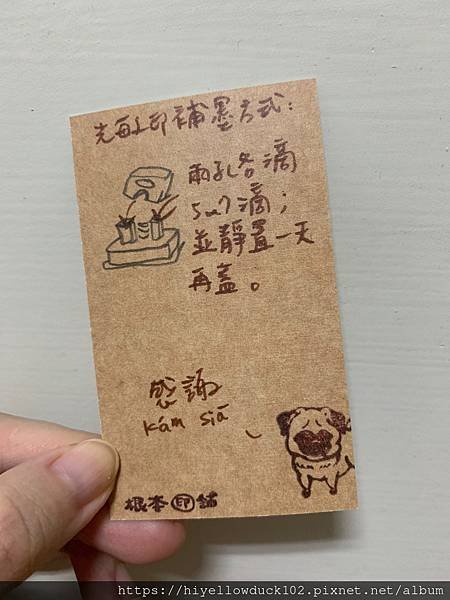 光敏印補墨方式：
兩孔各滴
5~7滴；
並靜置一天
再蓋。
感謝
kám siā
根本印舖
https://hiyellowduck102.pixnet.net/album